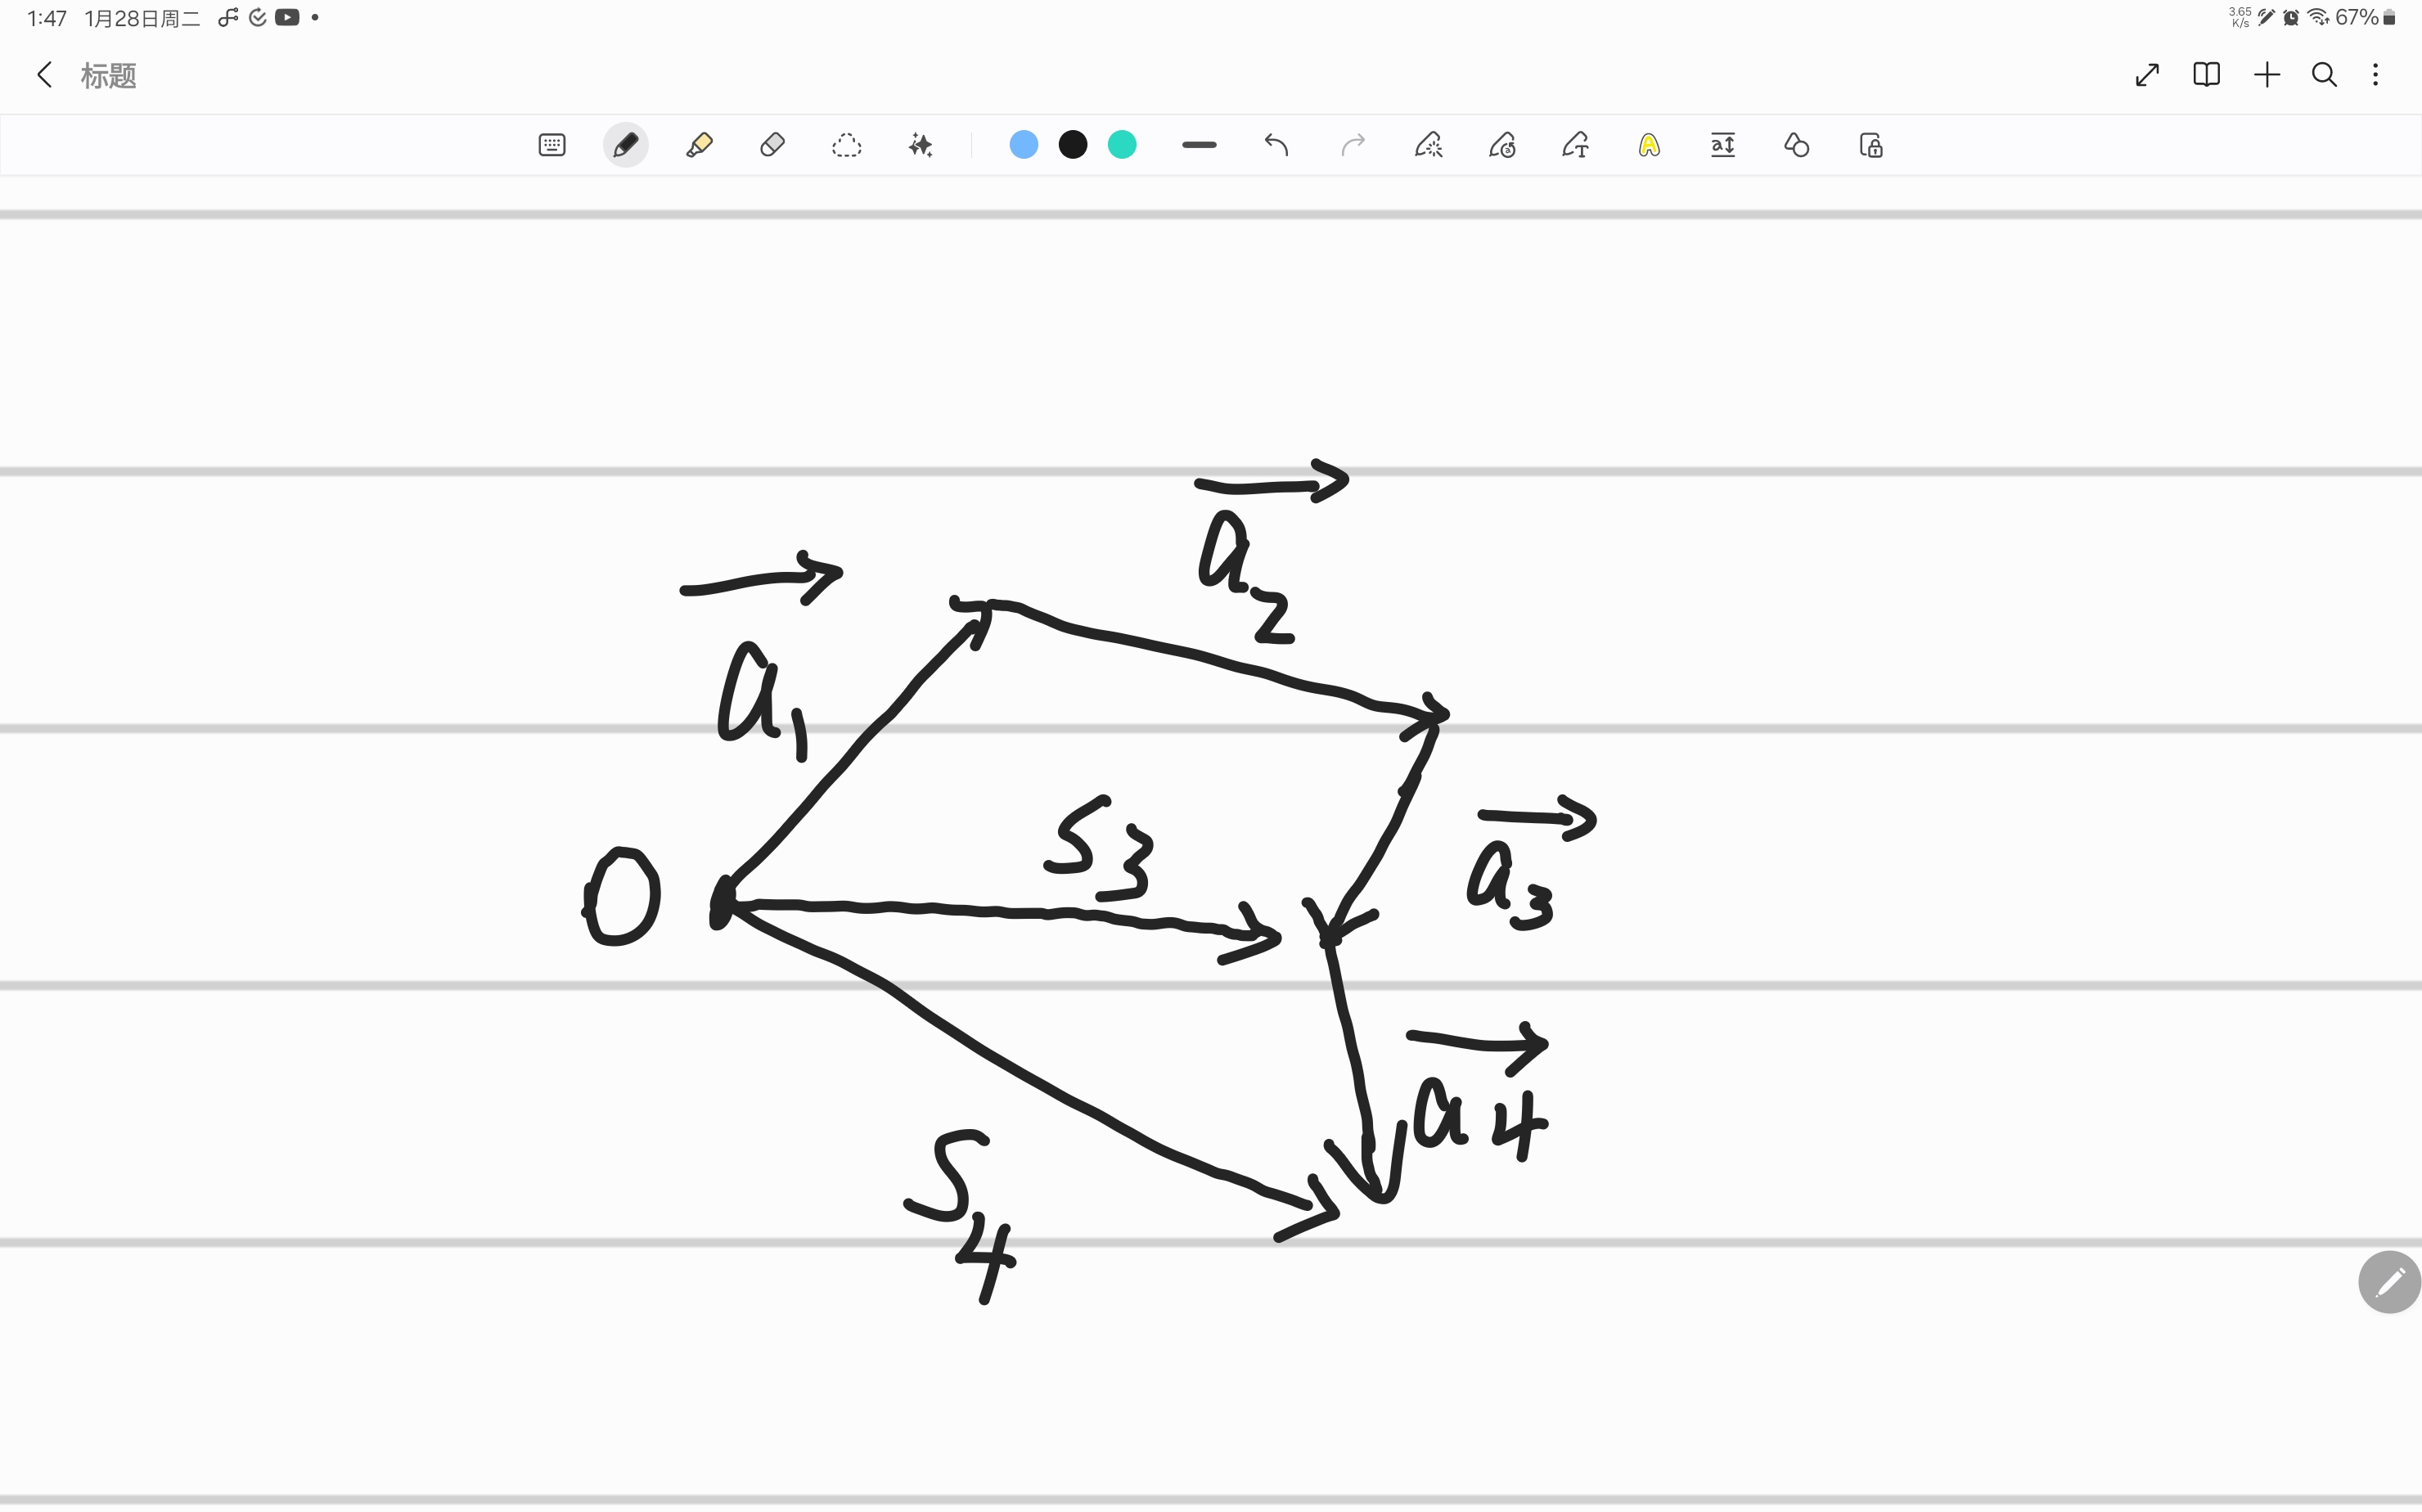 1:47 1月28日周二
3.65 K/s 67%
标题
a2
a1
S3
O
a3
a4
S4